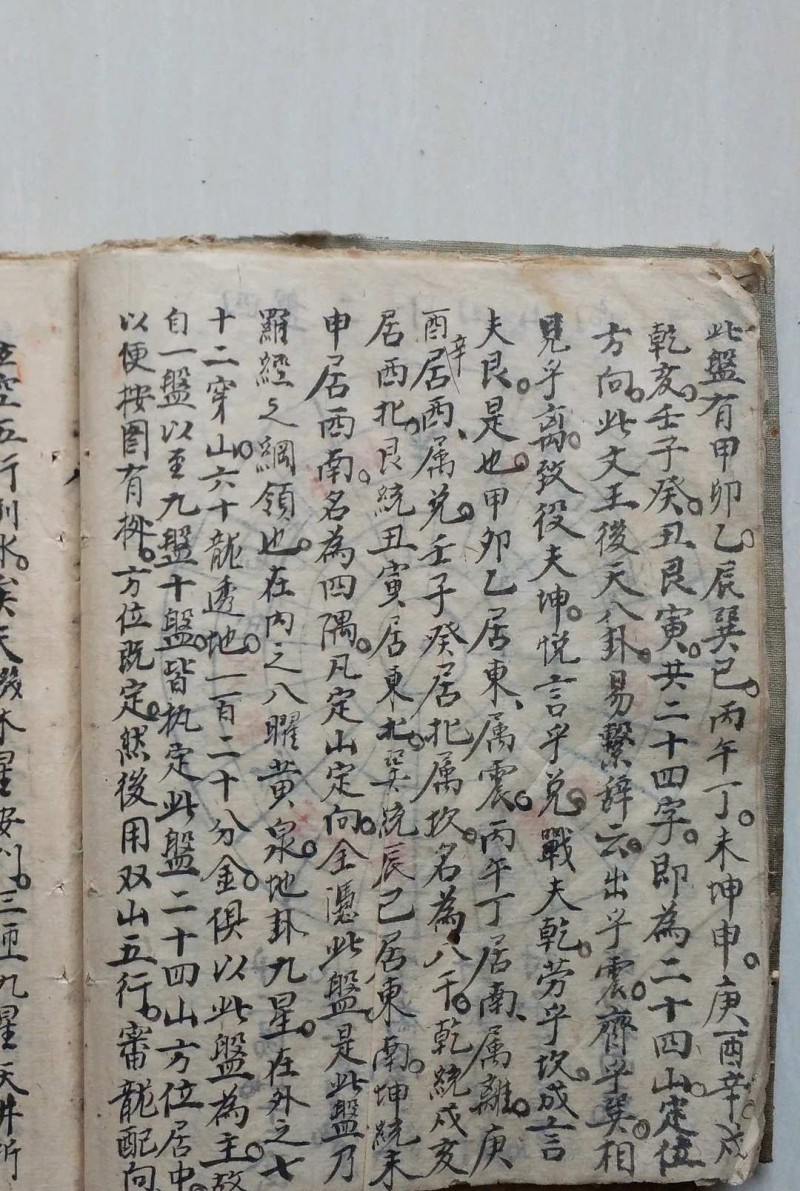 此盤有甲卯乙。辰巽巳。丙午丁。未坤申。庚酉辛。戌
乾亥。壬子癸。丑艮寅。共二十四字。即為二十四山。定位
方向。此文王後天八卦。易繫辞云。出乎震。齊乎巽。相
見乎离。致役夫坤。悅言乎兑。戰夫乾。劳乎坎。成言
夫艮。是也。甲卯乙居東、属震。丙午丁居南、属離。庚
酉辛居西、属兑。壬子癸居北属坎。名為八干。乾統戍亥
居西北。艮統丑寅居東北。巽統辰巳居東南。坤統未
申居西南。名為四隅。凡定山定向。全憑此盤是此盤乃
羅經之綱領也。在內之八曜黄泉。地卦九星。在外之七
十二穿山。六十龍透地。一百二十分金。俱以此盤為主。故
自一盤以至九盤十盤。皆执定此盤二十四山方位居中。
以便按圖有. 方位既定。然後用双山五行。審龍配向
五行
水。
天
木星安
三
九星天井